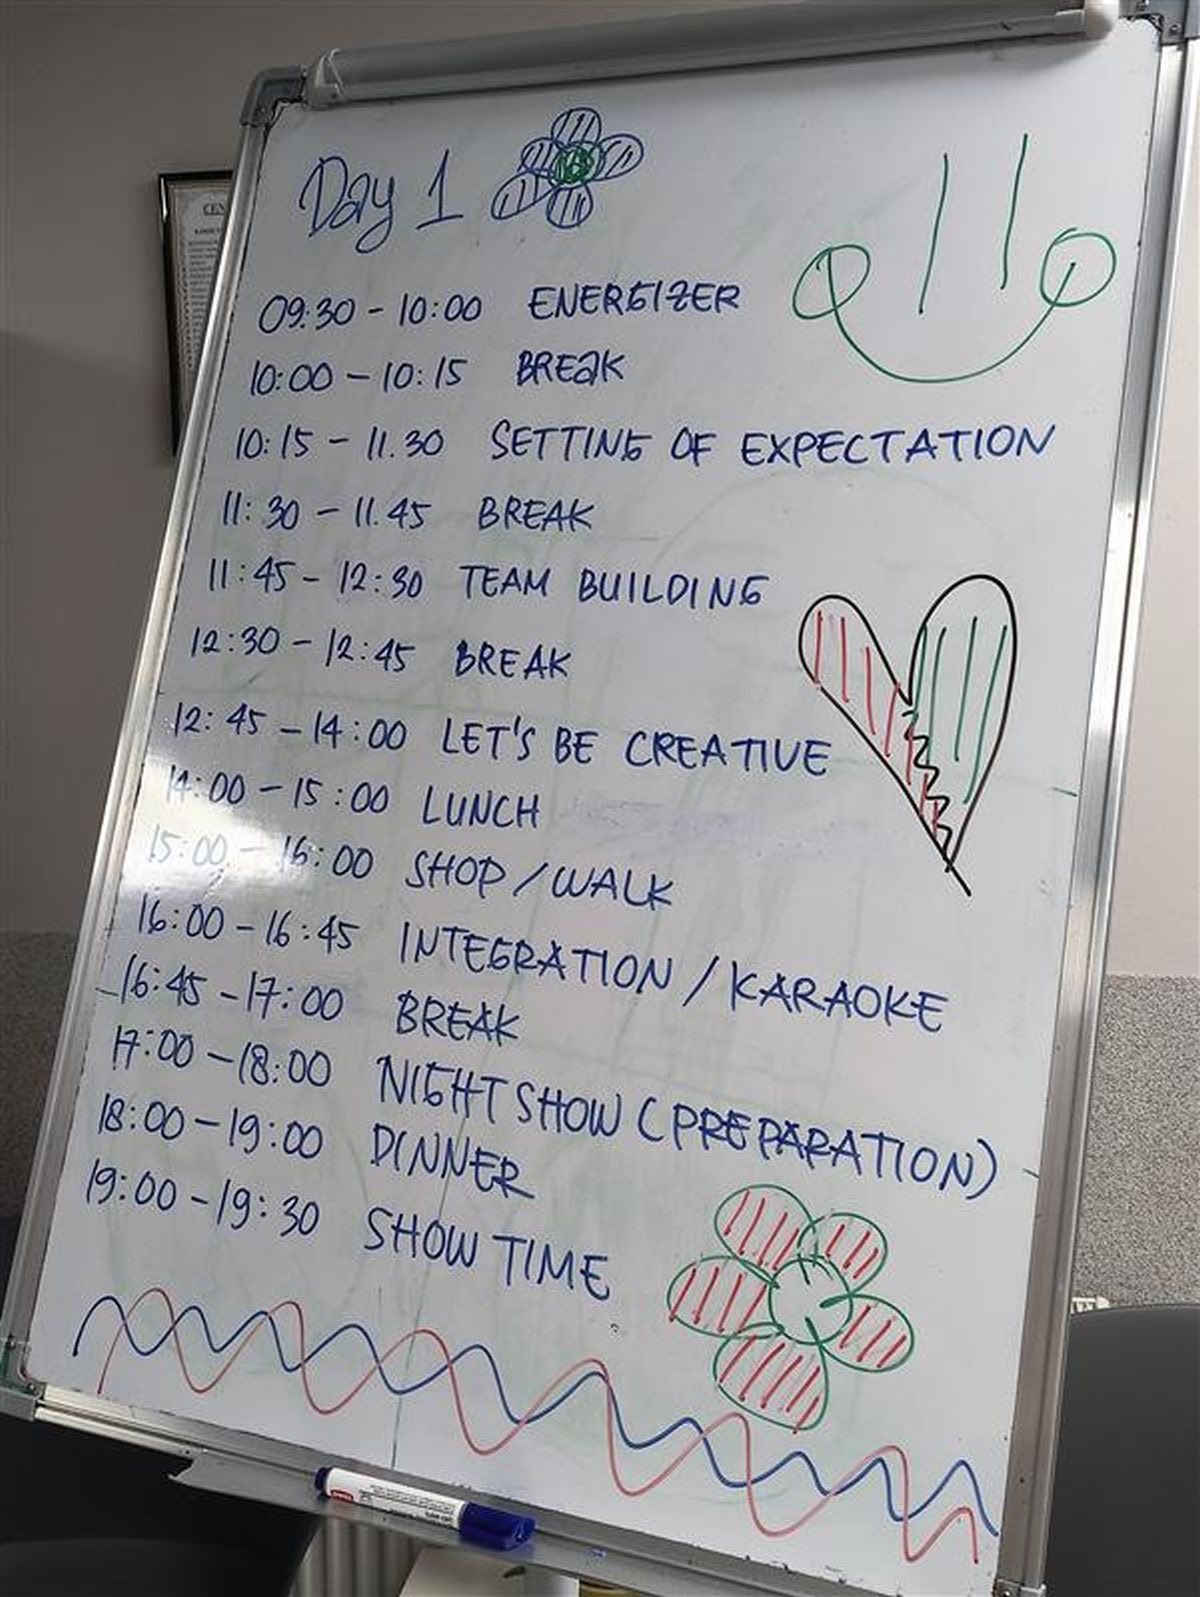 Day 1
09.30 - 10:00 ENERGIZER
10:00 - 10:15 BREaK
10:15 - 11.30 SETTING OF EXPECTATION
11:30 - 11.45 BREAK
11:45 - 12:30 TEAM BUILDING
12:30 - 12:45 BREAK
12:45 - 14:00 LET'S BE CREATIVE
14:00 - 15:00 LUNCH
15:00 - 16:00 SHOP / WALK
16:00 - 16:45 INTEGRATION / KARAOKE
16:45 - 17:00 BREAK
17:00 - 18:00 NIGHT SHOW (PREPARATION)
18:00 - 19:00 DINNER
19:00 - 19:30 SHOW TIME